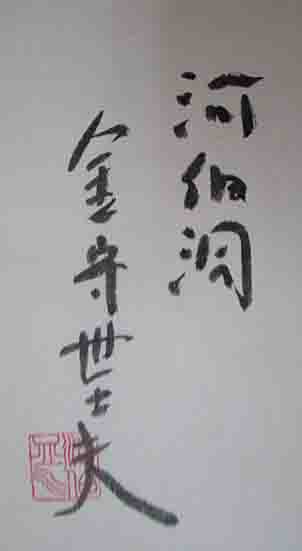 河伯洞
金守世士夫